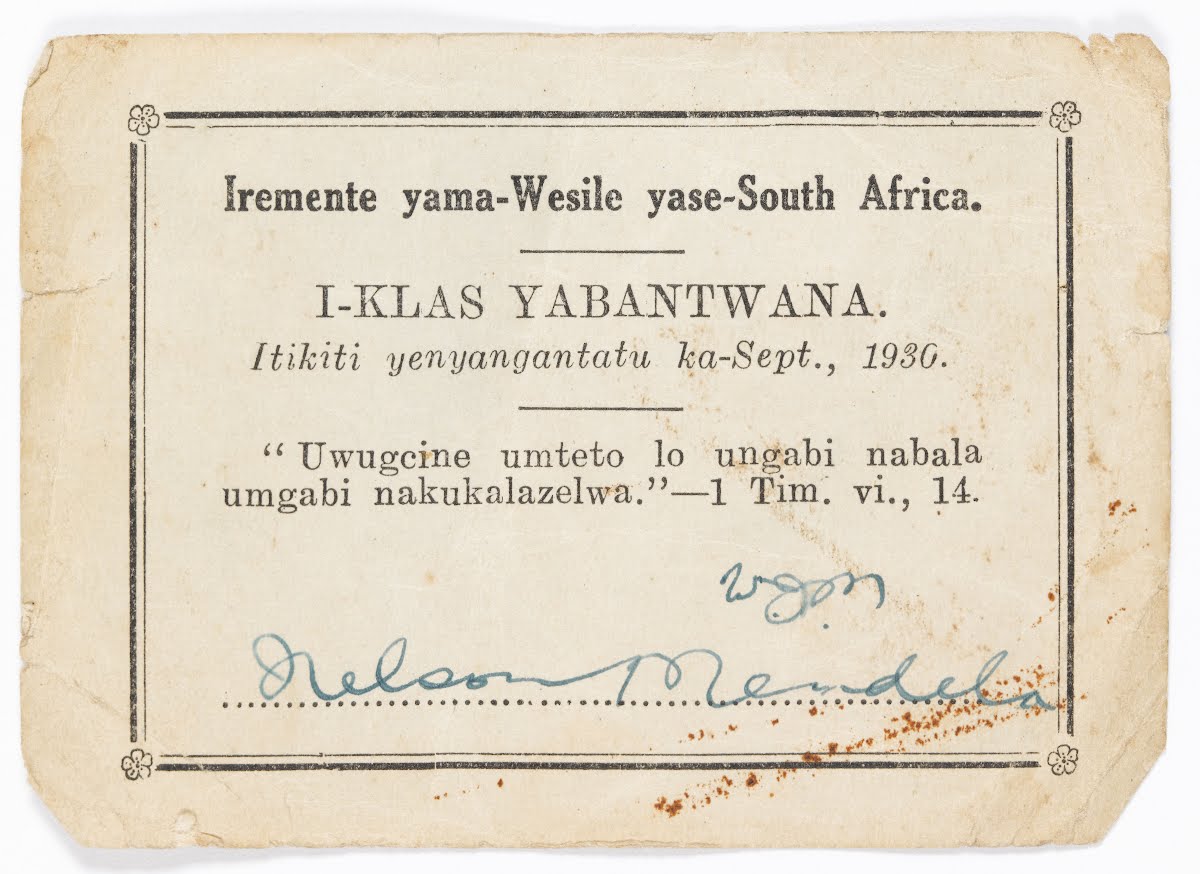 Iremente yama-Wesile yase-South Africa.
I-KLAS YABANTWANA.
Itikiti yenyangantatu ka-Sept., 1930.
“Uwugcine umteto lo ungabi nabala
umgabi nakukalazelwa.”—1 Tim. vi., 14.
W.J.M
Nelson Mendela